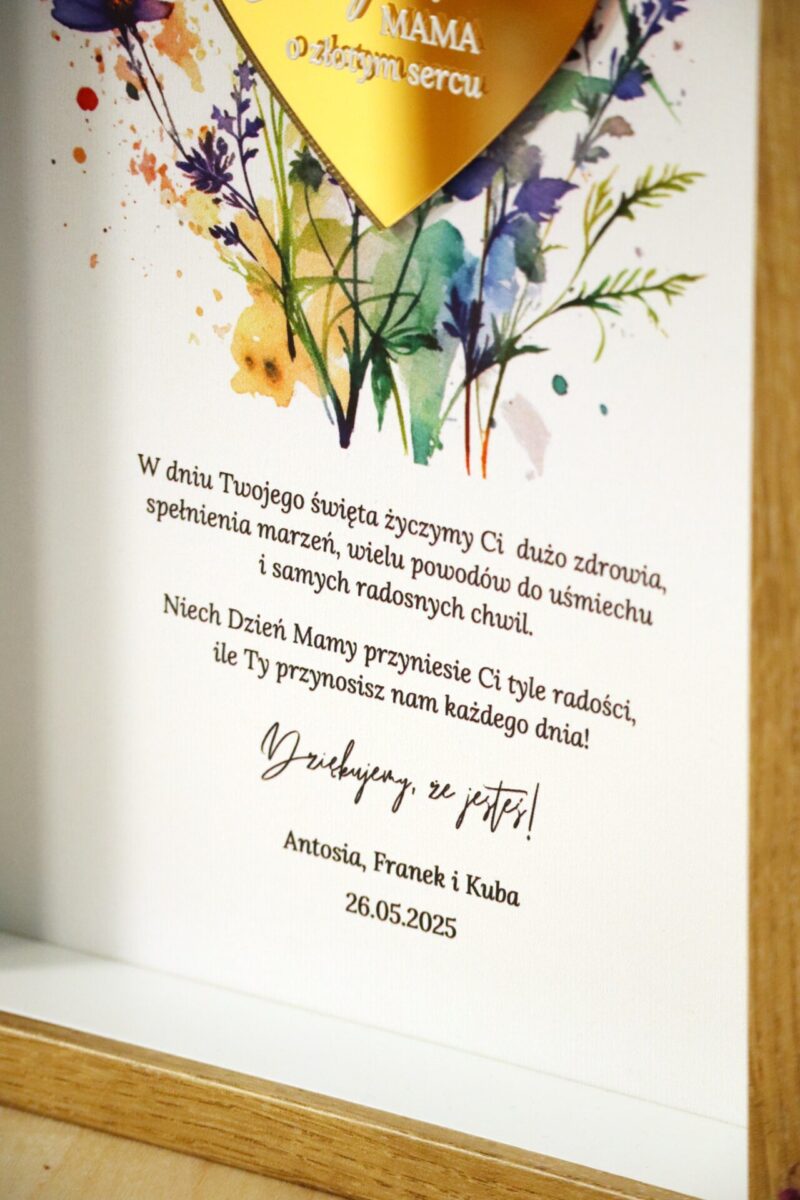 MAMA
o złotym sercu
W dniu Twojego święta życzymy Ci dużo zdrowia,
spełnienia marzeń, wielu powodów do uśmiechu
i samych radosnych chwil.
Niech Dzień Mamy przyniesie Ci tyle radości,
ile Ty przynosisz nam każdego dnia!
Dziękujemy, że jesteś!
Antosia, Franek i Kuba
26.05.2025